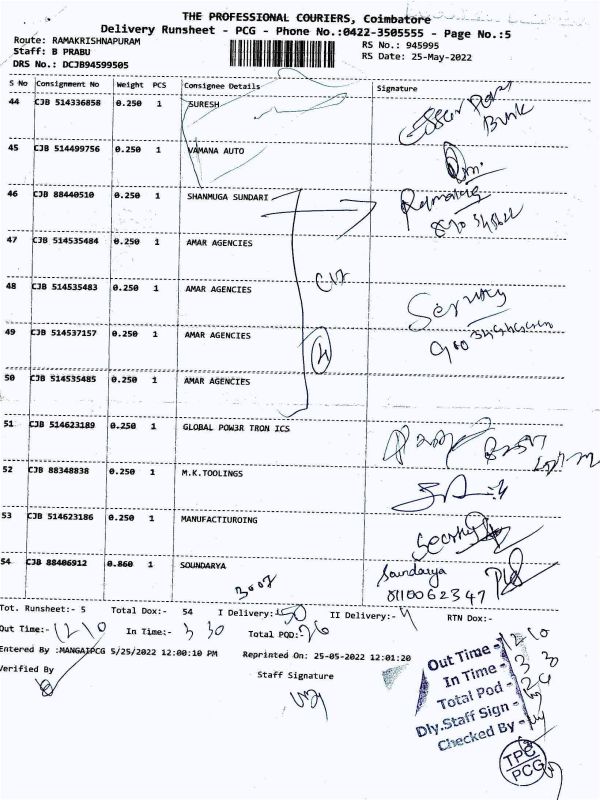 THE PROFESSIONAL COURIERS, Coimbatore
Delivery Runsheet - PCG - Phone No.:0422-3505555 - Page No.:5
Route: RAMAKRISHNAPURAM
RS No.: 945995
Staff: B PRABU
RS Date: 25-May-2022
DRS No.: DCJB94599505
S No Consignment No Weight PCS Consignee Details Signature
44 CJB 514336858 0.250 1 SURESH
Bunk
45 CJB 514499756 0.250 1 VAMANA AUTO
46 CJB 88440510 0.250 1 SHANMUGA SUNDARI
47 CJB 514535484 0.250 1 AMAR AGENCIES
48 CJB 514535483 0.250 1 AMAR AGENCIES
49 CJB 514537157 0.250 1 AMAR AGENCIES
50 CJB 514535485 0.250 1 AMAR AGENCIES
51 CJB 514623189 0.250 1 GLOBAL POW3R TRON ICS
52 CJB 88348838 0.250 1 M.K.TOOLINGS
53 CJB 514623186 0.250 1 MANUFACTIUROING
54 CJB 88406912 0.860 1 SOUNDARYA Soundarya
8110062347
Tot. Runsheet:- 5 Total Dox:- 54 I Delivery:- 50 II Delivery:- 4 RTN Dox:-
Out Time:- 12 10 In Time:- 3 30 Total POD:- 26
Entered By :MANGAIPCG 5/25/2022 12:00:10 PM Reprinted On: 25-05-2022 12:01:20
Verified By
Staff Signature
Out Time - 12 10
In Time - 3 30
Total Pod - 26
Dly.Staff Sign -
Checked By -
TPC
PCG